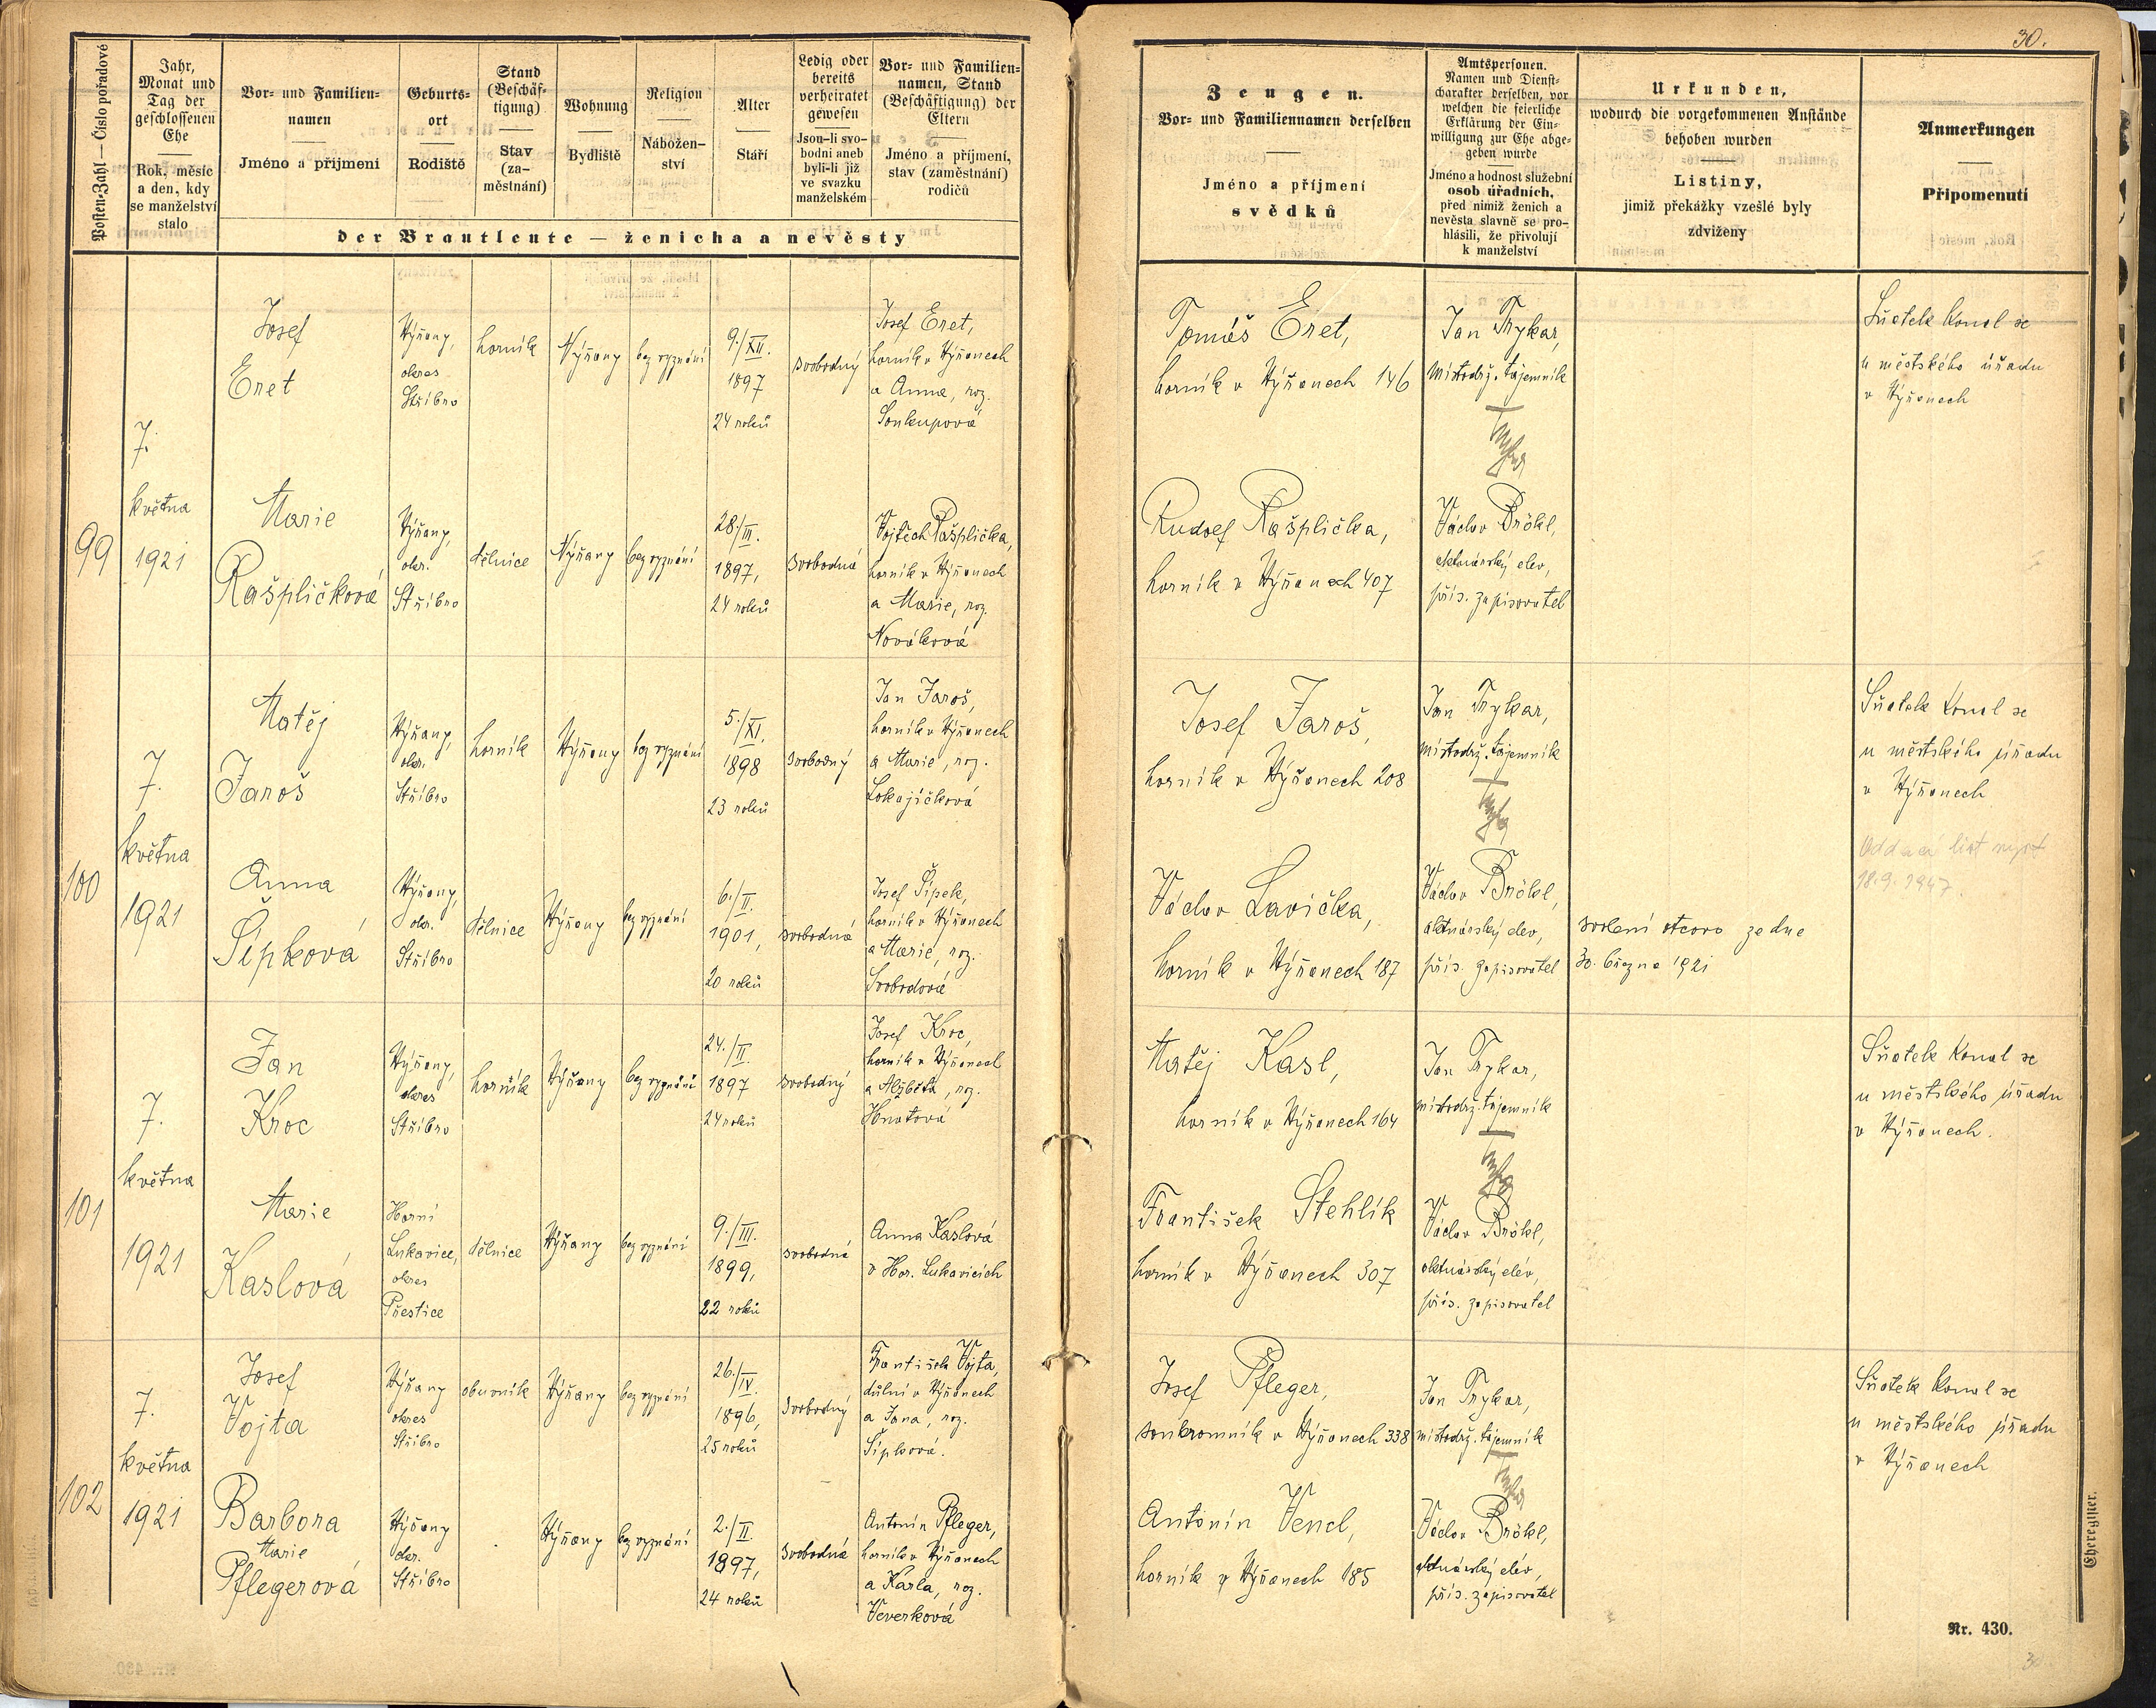 30.
Posten-Zahl — Číslo pořadové
Jahr,
Monat und
Tag der
geschlossenen
Ehe
Rok, měsíc
a den, kdy
se manželství
stalo
Vor- und Familien-
namen
Jméno a příjmení
Geburts-
ort
Rodiště
Stand
(Beschäf-
tigung)
Stav
(za-
městnání)
Wohnung
Bydliště
Religion
Nábožen-
ství
Alter
Stáří
Ledig oder
bereits
verheiratet
gewesen
Jsou-li svo-
bodni aneb
byli-li již
ve svazku
manželském
Vor- und Familien-
namen, Stand
(Beschäftigung) der
Eltern
Jméno a příjmení,
stav (zaměstnání)
rodičů
der Brautleute — ženicha a nevěsty
Zeugen.
Vor- und Familiennamen derselben
Jméno a příjmení
svědků
Amtspersonen.
Namen und Dienst-
charakter derselben, vor
welchen die feierliche
Erklärung der Ein-
willigung zur Ehe abge-
geben wurde
Jméno a hodnost služební
osob úřadních,
před nimiž ženich a
nevěsta slavně se pro-
hlásili, že přivolují
k manželství
Urkunden,
wodurch die vorgekommenen Anstände
behoben wurden
Listiny,
jimiž překážky vzešlé byly
zdviženy
Anmerkungen
Připomenutí
99
7.
května
1921
Josef
Eret
Nýřany,
okres
Stříbro
horník
Nýřany
bez vyznání
9./XII.
1897
24 roků
svobodný
Josef Eret,
horník v Nýřanech
a Anna, roz.
Soukupová
Tomáš Eret,
horník v Nýřanech 146
Jan Trykar,
místodrž. tajemník
Sňatek konal se
u městského úřadu
v Nýřanech
Marie
Rašpličková
Nýřany,
okr.
Stříbro
dělnice
Nýřany
bez vyznání
28./III.
1897,
24 roků
svobodná
Vojtěch Rašplička,
horník v Nýřanech
a Marie, roz.
Nováková
Rudolf Rašplička,
horník v Nýřanech 407
Václav Brökl,
aktuárský elev,
přís. zapisovatel
100
7.
května
1921
Matěj
Jaroš
Nýřany,
okr.
Stříbro
horník
Nýřany
bez vyznání
5./XI.
1898
23 roků
svobodný
Jan Jaroš,
horník v Nýřanech
a Marie, roz.
Lokajíčková
Josef Jaroš,
horník v Nýřanech 208
Jan Trykar,
místodrž. tajemník
Sňatek konal se
u městského úřadu
v Nýřanech
Oddací list
18.9.1947.
Anna
Šípková
Nýřany,
okr.
Stříbro
dělnice
Nýřany
bez vyznání
6./II.
1901,
20 roků
svobodná
Josef Šípek,
horník v Nýřanech
a Marie, roz.
Svobodová
Václav Lavička,
horník v Nýřanech 187
Václav Brökl,
aktuárský elev,
přís. zapisovatel
svolení otcovo ze dne
30. března 1921
101
7.
května
1921
Jan
Kroc
Nýřany,
okres
Stříbro
horník
Nýřany
bez vyznání
24./II.
1897
24 roků
svobodný
Josef Kroc,
horník v Nýřanech
a Alžběta, roz.
Hnatová
Matěj Kasl,
horník v Nýřanech 164
Jan Trykar,
místodrž. tajemník
Sňatek konal se
u městského úřadu
v Nýřanech.
Marie
Kaslová
Horní
Lukavice,
okres
Přestice
dělnice
Nýřany
bez vyznání
9./III.
1899,
22 roků
svobodná
Anna Kaslová
v Hor. Lukavicích
František Stehlík
horník v Nýřanech 307
Václav Brökl,
aktuárský elév,
přís. zapisovatel
102
7.
května
1921
Josef
Vojta
Nýřany
okres
Stříbro
obuvník
Nýřany
bez vyznání
26./IV.
1896,
25 roků
svobodný
František Vojta,
důlní v Nýřanech
a Jana, roz.
Šípková.
Josef Pfleger,
soukromník v Nýřanech 338
Jan Trykar,
místodrž. tajemník
Sňatek konal se
u městského úřadu
v Nýřanech
Barbora
Marie
Pflegerová
Nýřany
okr.
Stříbro
Nýřany
bez vyznání
2./II.
1897,
24 roků
svobodná
Antonín Pfleger,
horník v Nýřanech
a Karla, roz.
Veverková
Antonín Vencl,
horník v Nýřanech 185
Václav Brökl,
aktuárský elév,
přís. zapisovatel
Eheregister.
Nr. 430.